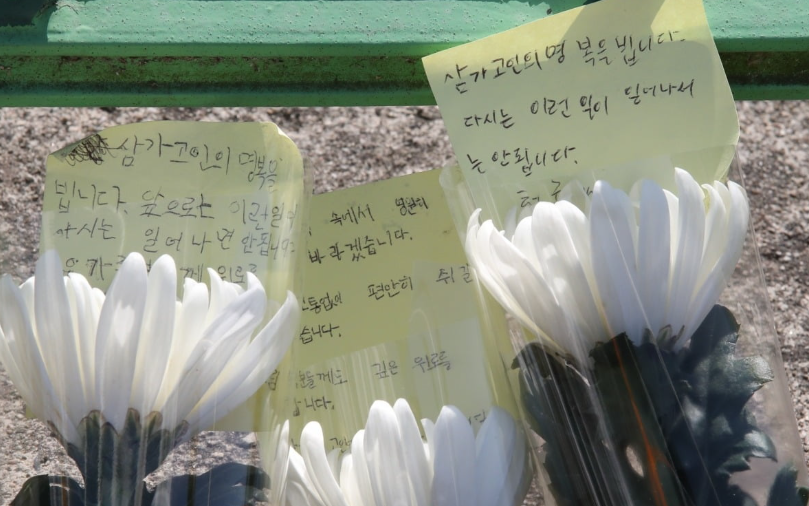 삼가고인의 명복을
빕니다. 앞으로는 이런일이
다시는 일어나면 안됩니다.
께 위로
속에서 영원히
바라겠습니다.
편안히 쉬길
습니다.
분들께도 깊은 위로를
니다.
삼가고인의명 복을 빕니다.
다시는 이런 일이 일어나서
는안됩니다.